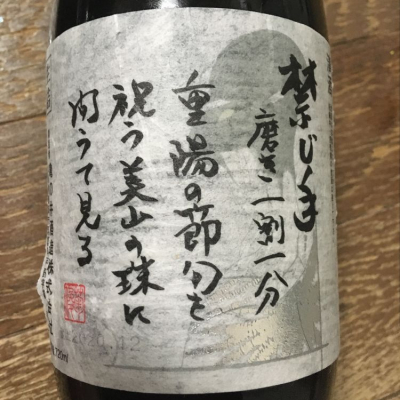 禁じ手
磨き一割一分
重陽の節句を
祝う美山の珠に
問うて見る
720ml